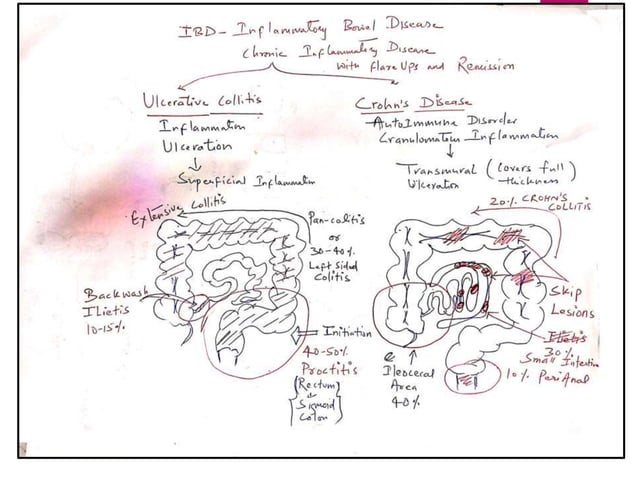 IBD - Inflammatory Bowel Disease
Chronic Inflammatory Disease
with flare Ups and Remission
Ulcerative Collitis
Inflammation
Ulceration
Superficial Inflammation
Crohn's Disease
AutoImmune Disorder
Granulomatous Inflammation
Transmural (covers full
Ulceration thickness)
20% CROHN'S
COLLITIS
Extensive Collitis
Pan-colitis
or
30-40%
Left Sided
Colitis
Backwash
Ilietis
10-15%
Initiation
40-50%
Proctitis
(Rectum
Sigmoid
Colon)
Ileocecal
Area
40%
Skip
Lesions
Ilietis
30%
Small Intestine
10% PeriAnal